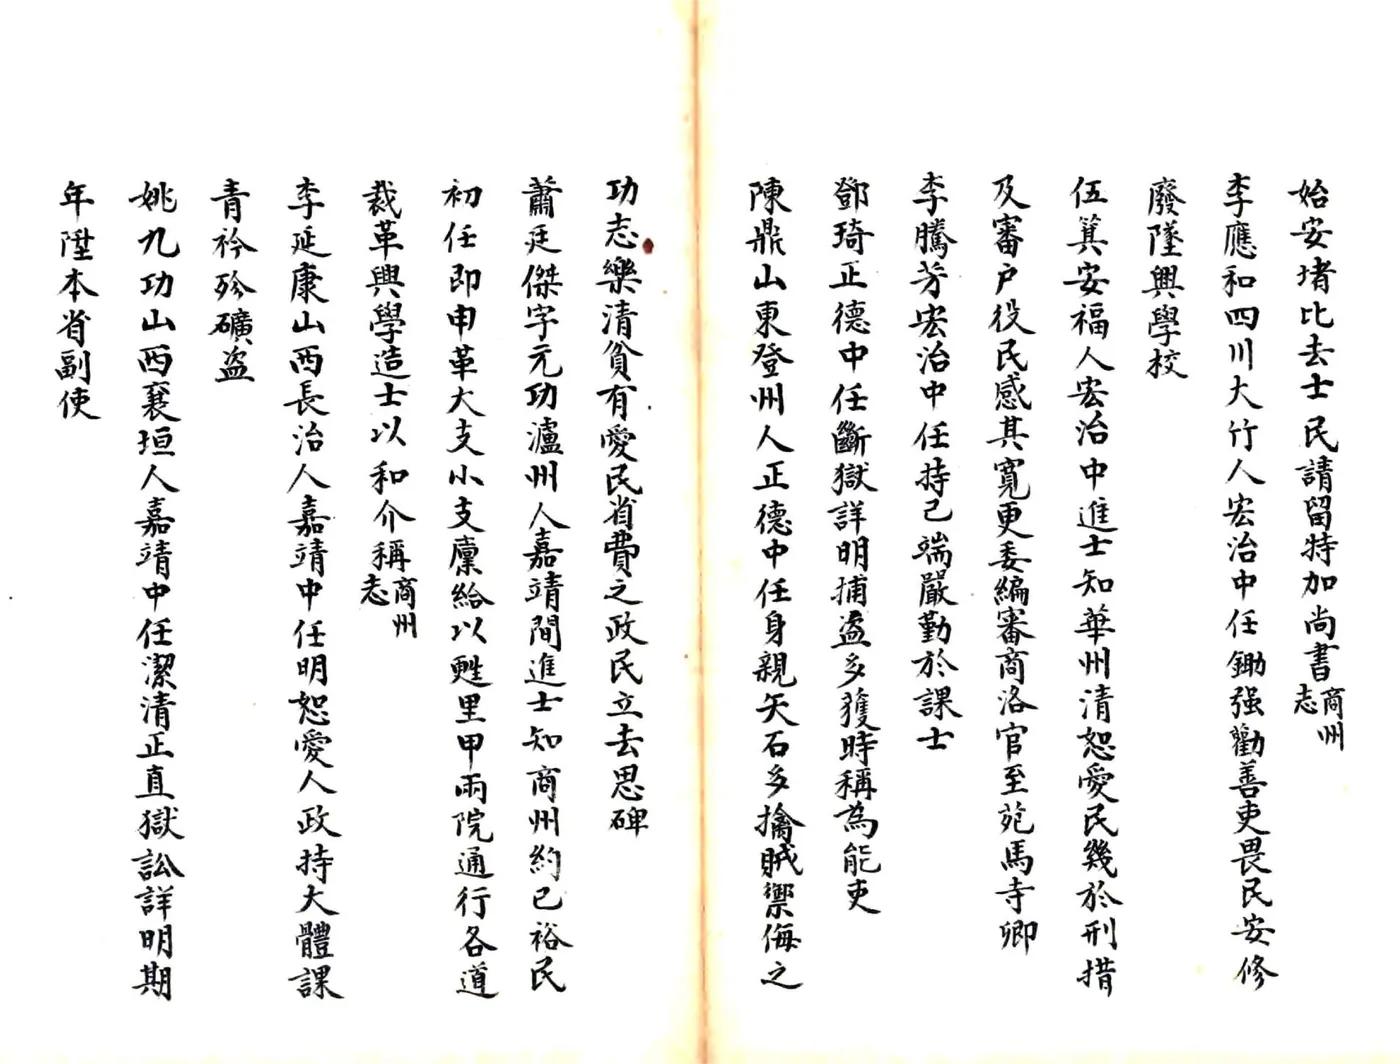 始安堵比去士民請留特加尚書商州志
李應和四川大竹人宏治中任鋤强勸善吏畏民安修
廢墜興學校
伍箕安福人宏治中進士知華州清恕愛民幾於刑措
及審户役民感其寬更委編審商洛官至苑馬寺卿
李騰芳宏治中任持己端嚴勤於課士
鄧琦正德中任斷獄詳明捕盗多獲時稱為能吏
陳鼎山東登州人正德中任身親矢石多擒賊禦侮之
功志樂清貧有愛民省費之政民立去思碑
蕭廷傑字元功瀘州人嘉靖間進士知商州約己裕民
初任即申革大支小支廩給以甦里甲兩院通行各道
裁革興學造士以和介稱商州志
李延康山西長治人嘉靖中任明恕愛人政持大體課
青衿殄礦盗
姚九功山西襄垣人嘉靖中任潔清正直獄訟詳明期
年陞本省副使